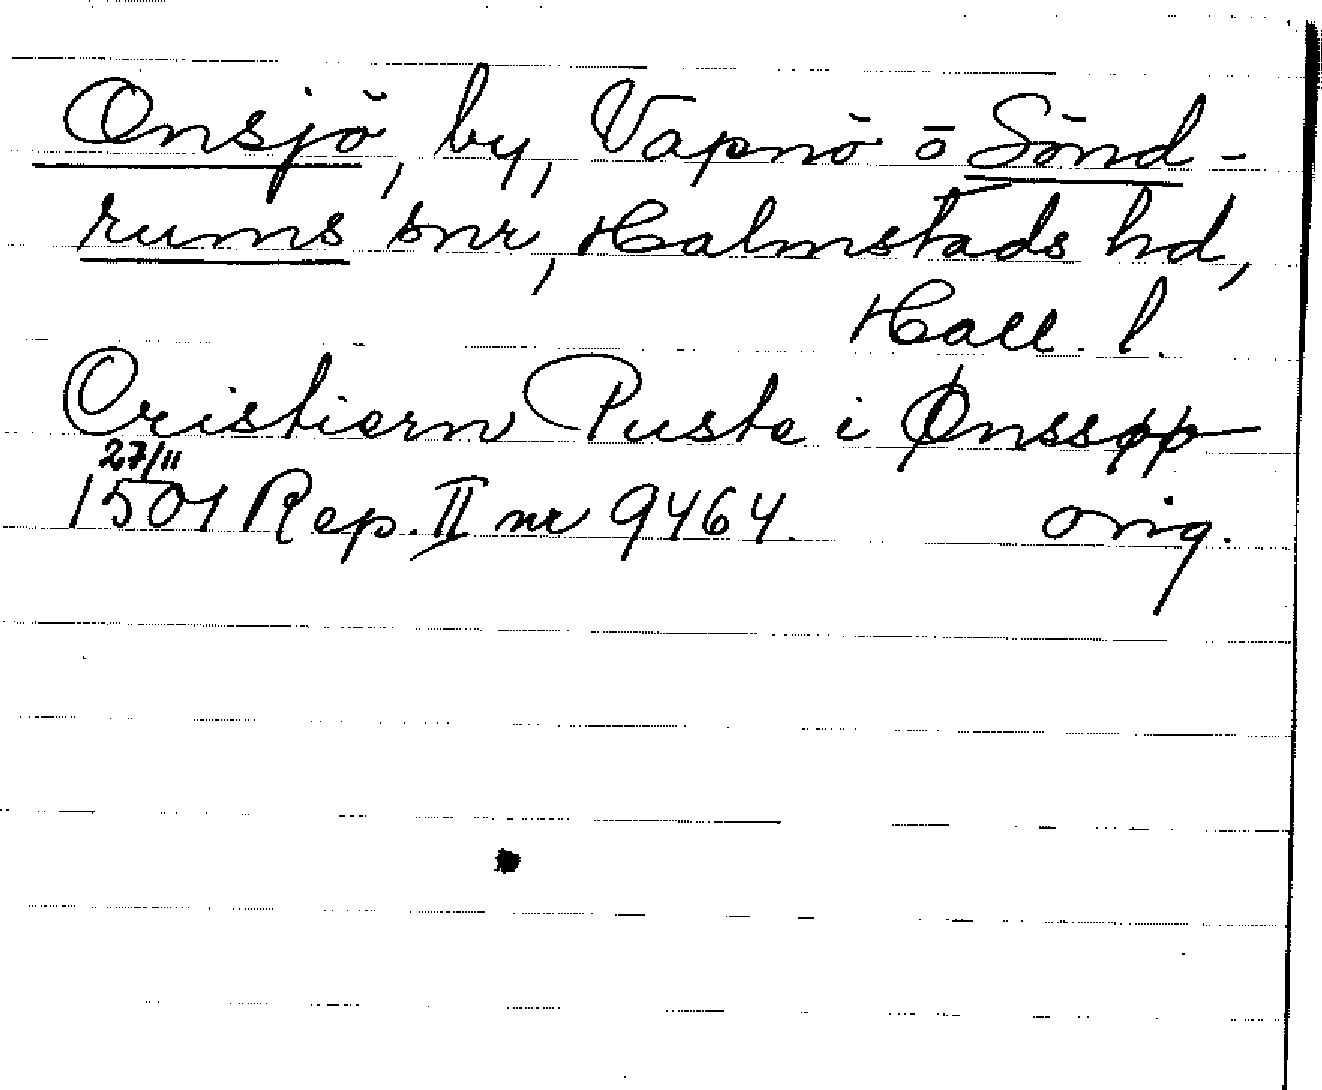 Onsjö, by, Vapnö o Sönd-
rums snr, Halmstads hd,
Hall. l.
Cristiern Puste i Ønssøp
27/11
1501 Rep. II nr 9464. orig.